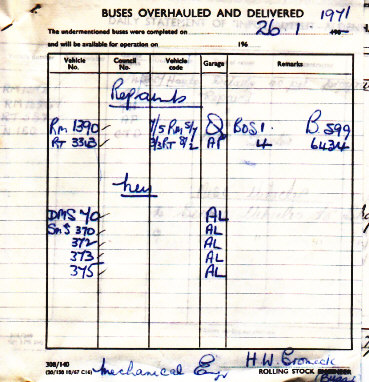 BUSES OVERHAULED AND DELIVERED 1971
The undermentioned buses were completed on 26 1 196
and will be available for operation on 196
Vehicle No. Council No. Vehicle code Garage Remarks
Repaints
RM 1390 1/5 RM 5/7 Q BOS 1. B 599
RT 3343 3/3 RT 8/2 AP 4 6434
New
DMS 40 AL
SMS 370 AL
372 AL
373 AL
375 AL
308/140
(20/150 10/67 C16) Mechanical Eng. H.W.
ROLLING STOCK ENGINEER